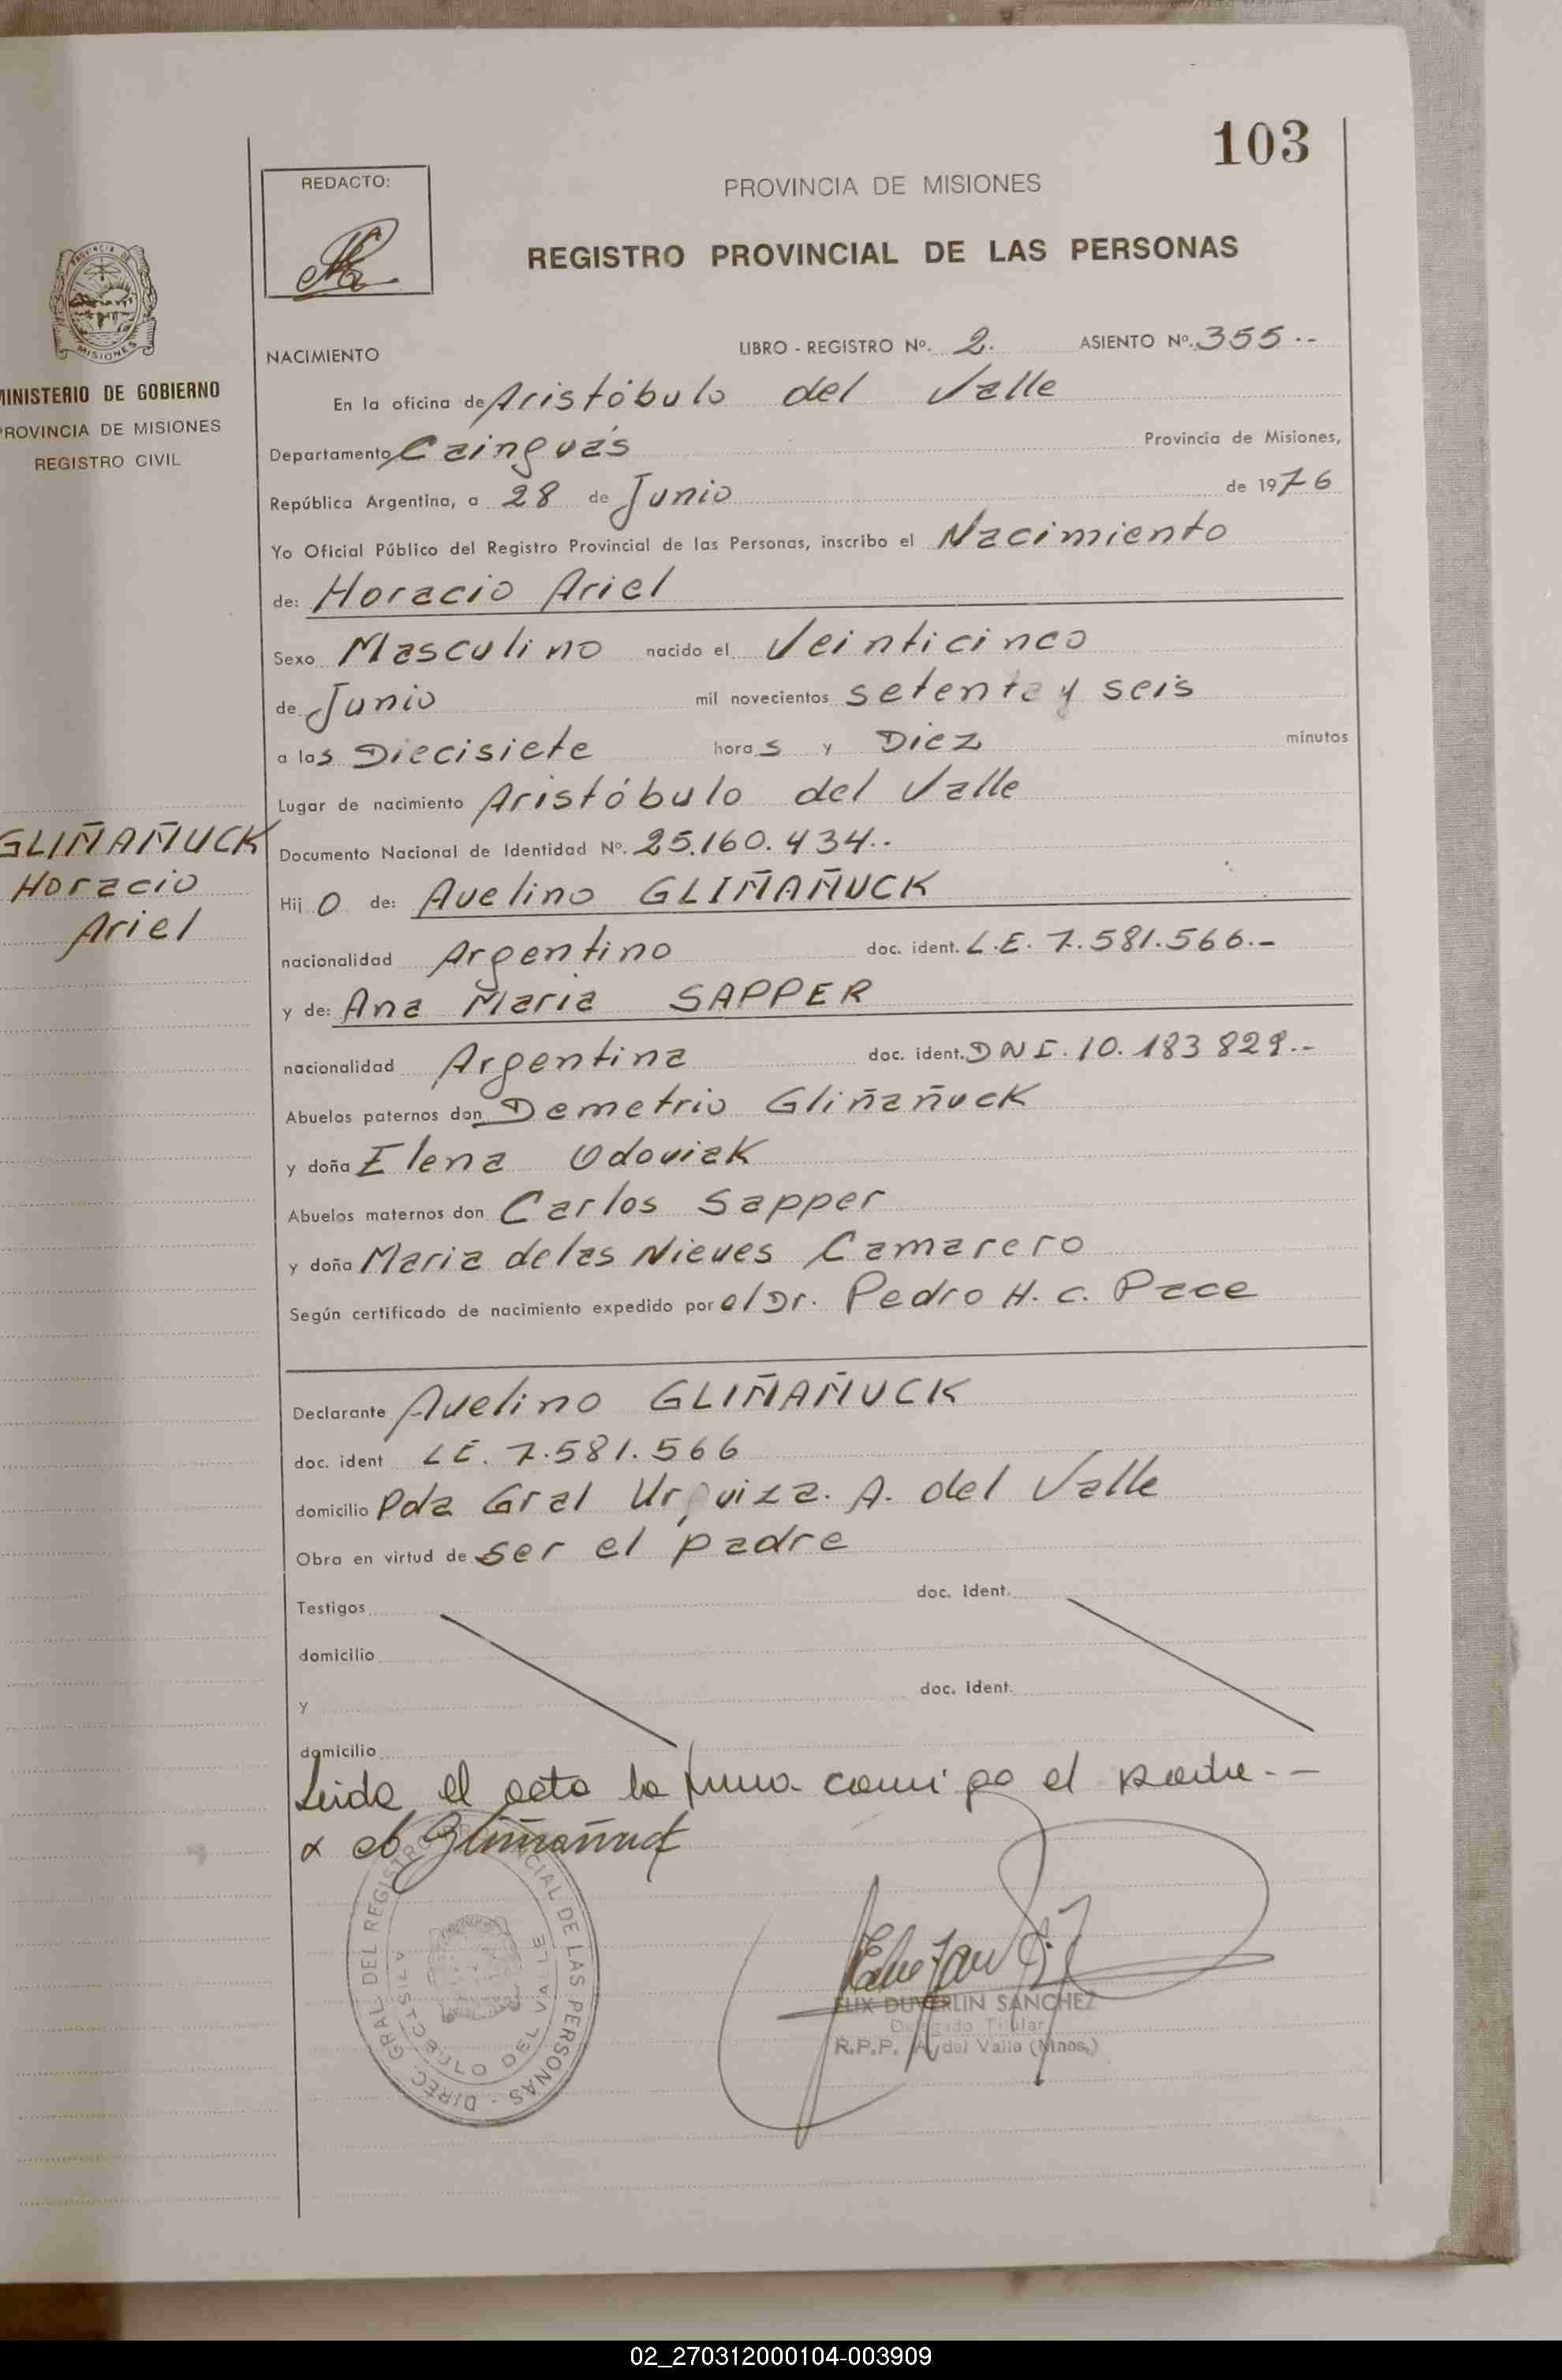 103
REDACTO:
PROVINCIA DE MISIONES
REGISTRO PROVINCIAL DE LAS PERSONAS
PROVINCIA DE
MISIONES
MINISTERIO DE GOBIERNO
PROVINCIA DE MISIONES
REGISTRO CIVIL
NACIMIENTO LIBRO - REGISTRO Nº. 2. ASIENTO Nº. 355.--
En la oficina de Aristóbulo del Valle
Departamento Cainguás Provincia de Misiones,
República Argentina, a 28 de Junio de 1976
Yo Oficial Público del Registro Provincial de las Personas, inscribo el Nacimiento
de: Horacio Ariel
Sexo Masculino nacido el Veinticinco
de Junio mil novecientos setenta y seis
a las Diecisiete horas y Diez minutos
Lugar de nacimiento Aristóbulo del Valle
GLIÑAÑUCK
Horacio
Ariel
Documento Nacional de Identidad Nº. 25.160.434..
Hijo de: Avelino GLIÑAÑUCK
nacionalidad Argentino doc. ident. L.E. 7.581.566.-
y de: Ana Maria SAPPER
nacionalidad Argentina doc. ident. DNI. 10.183829.-
Abuelos paternos don Demetrio Gliñañuck
y doña Elena Odoviak
Abuelos maternos don Carlos Sapper
y doña Maria de las Nieves Camarero
Según certificado de nacimiento expedido por el Dr. Pedro H. C. Pace
Declarante Avelino GLIÑAÑUCK
doc. ident LE. 7.581.566
domicilio Pda Gral Urquiza. A. del Valle
Obra en virtud de ser el padre
Testigos doc. ident.
domicilio
y doc. ident.
domicilio
Leida el acta la firma conmigo el padre.-
Gliñañuck
DIREC. GRAL. DEL REGISTRO PROVINCIAL DE LAS PERSONAS -
ARISTOBULO DEL VALLE
FELIX DUVERLIN SANCHEZ
Delegado Titular
R.P.P. A. del Valle (Mnes.)
02_270312000104-003909